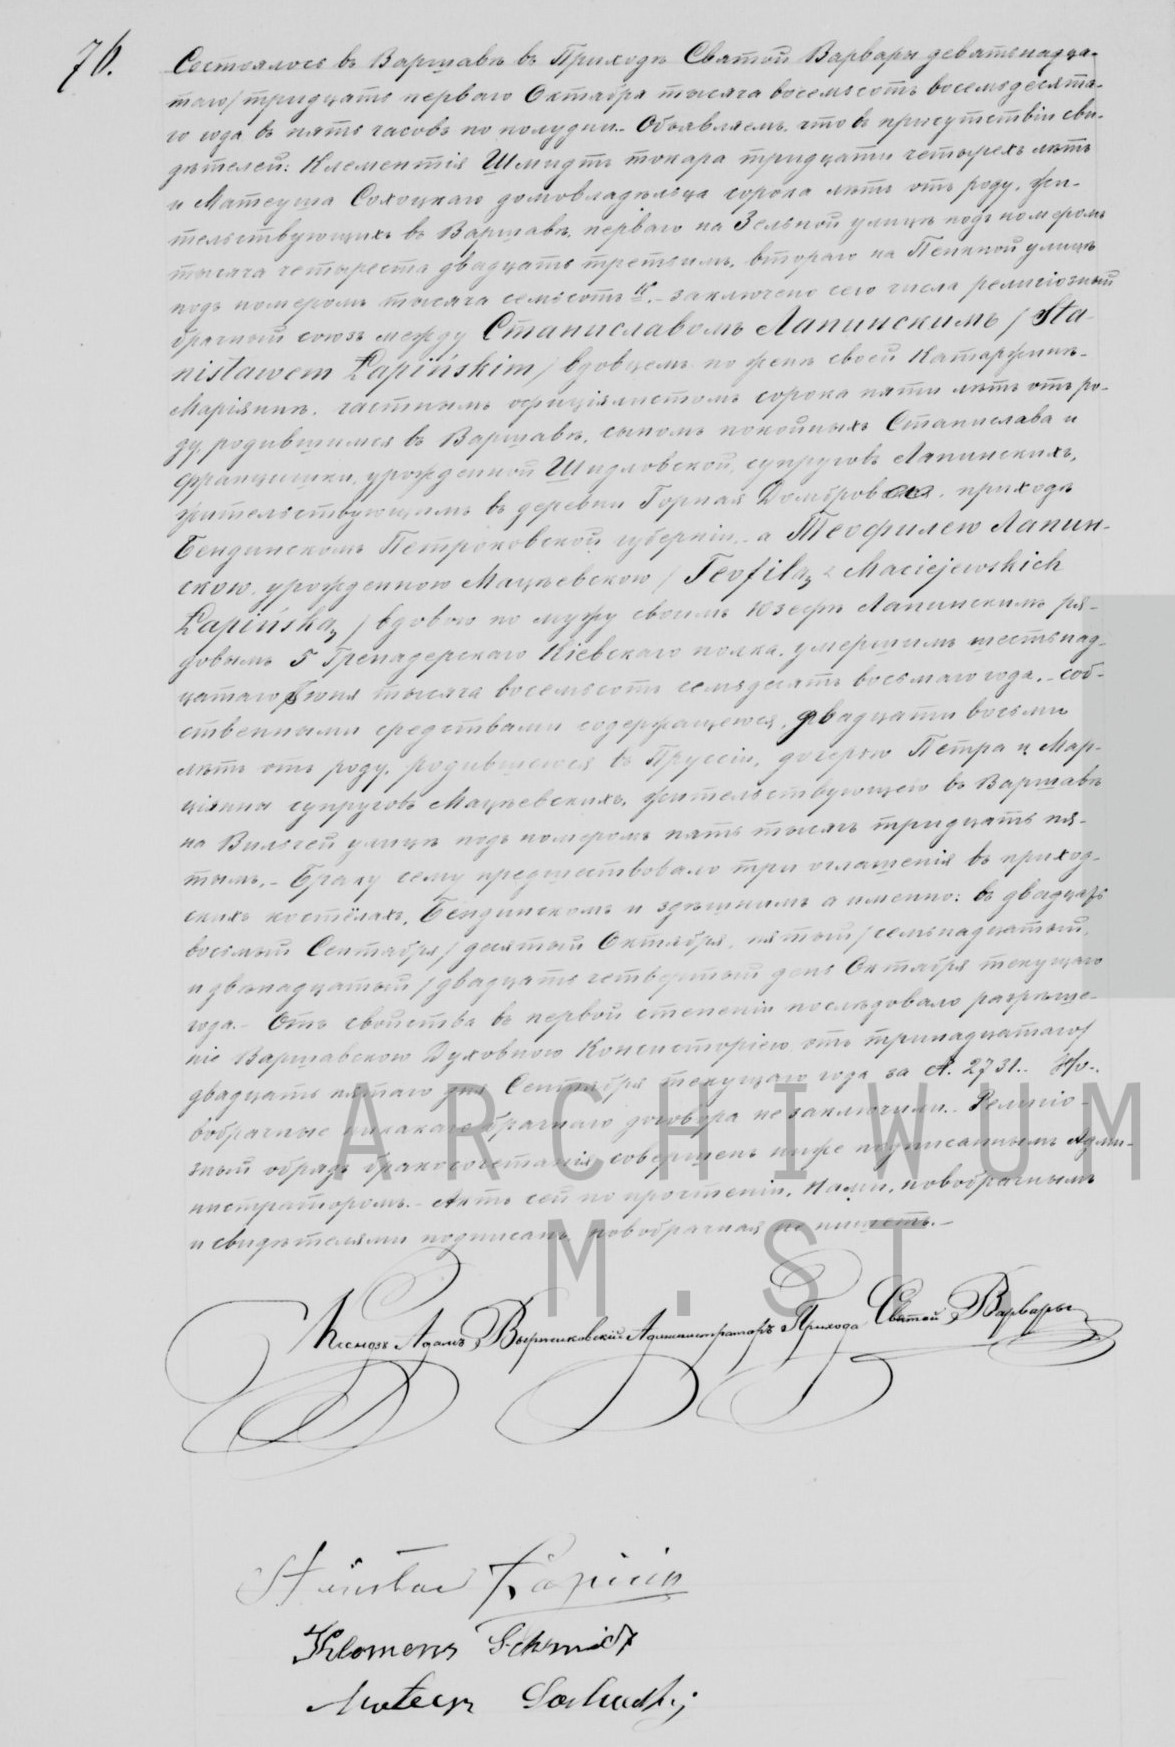 76.
Состоялось въ Варшавѣ въ Приходѣ Святой Варвары девятьнадца-
таго/тридцать перваго Октября тысяча восемьсотъ восемьдесята-
го года въ пять часовъ по полудни. Объявляемъ, что въ присутствіи сви-
дѣтелей: Клементія Шмидтъ токаря тридцати четырехъ лѣтъ
и Матеуша Сохоцкаго домовладѣльца сорока лѣтъ отъ роду, жи-
тельствующихъ въ Варшавѣ, перваго на Зельной улицѣ подъ номеромъ
тысяча четыреста двадцать третьимъ, втораго на Пенкной улицѣ
подъ номеромъ тысяча семьсотъ – заключенъ сего числа религіозный
брачный союзъ между Станиславомъ Лапинскимъ / Sta-
nisławem Łapińskim / вдовцемъ по женѣ своей Катаржинѣ-
Маріяннѣ, частнымъ офиціялистомъ сорока пяти лѣтъ отъ ро-
ду, родившимся въ Варшавѣ, сыномъ покойныхъ Станислава и
Францишки, урожденной Шидловской, супруговъ Лапинскихъ,
жительствующимъ въ деревни Горная Домброва, прихода
Бендинскомъ Петроковской губерніи, – а Теофилею Лапин-
скою, урожденною Мацѣевскою / Teofilą z Maciejewskich
Łapińską / вдовою по мужу своимъ Юзефѣ Лапинскимъ ря-
довымъ 5 Гренадерскаго Кіевскаго полка, умершимъ шестьнад-
цатаго Іюня тысяча восемьсотъ семьдесятъ восьмаго года, – соб-
ственными средствами содержащеюся, двадцати восьми
лѣтъ отъ роду, родившеюся въ Пруссіи, дочерью Петра и Мар-
ціянны супруговъ Мацѣевскихъ, жительствующею въ Варшавѣ
на Вильчей улицѣ подъ номеромъ пять тысячъ тридцать пя-
тымъ. – Браку сему предшествовало три оглашенія въ приход-
скихъ костёлахъ, Бендинскомъ и здѣшнимъ а именно: въ двадцать
восьмый Сентября / десятый Октября, пятый / семьнадцатый,
и двѣнадцатый / двадцать четвертый день Октября текущаго
года. – Отъ свойства въ первой степени послѣдовало разрѣше-
ніе Варшавскою Духовною Консисторіею отъ тринадцатаго/
двадцать пятаго дня Сентября текущаго года за №. 2731. Но-
вобрачные никакаго брачнаго договора не заключили. Религіо-
зный обрядъ бракосочетанія совершенъ ниже подписаннымъ Адми-
нистраторомъ. – Актъ сей по прочтеніи, Нами, новобрачнымъ
и свидѣтелями подписанъ, новобрачная не пишетъ. –
Ксендзъ Адамъ Администраторъ Прихода Святой Варвары
Klemens Schmidt
Mateusz
ARCHIWUM
M. ST.